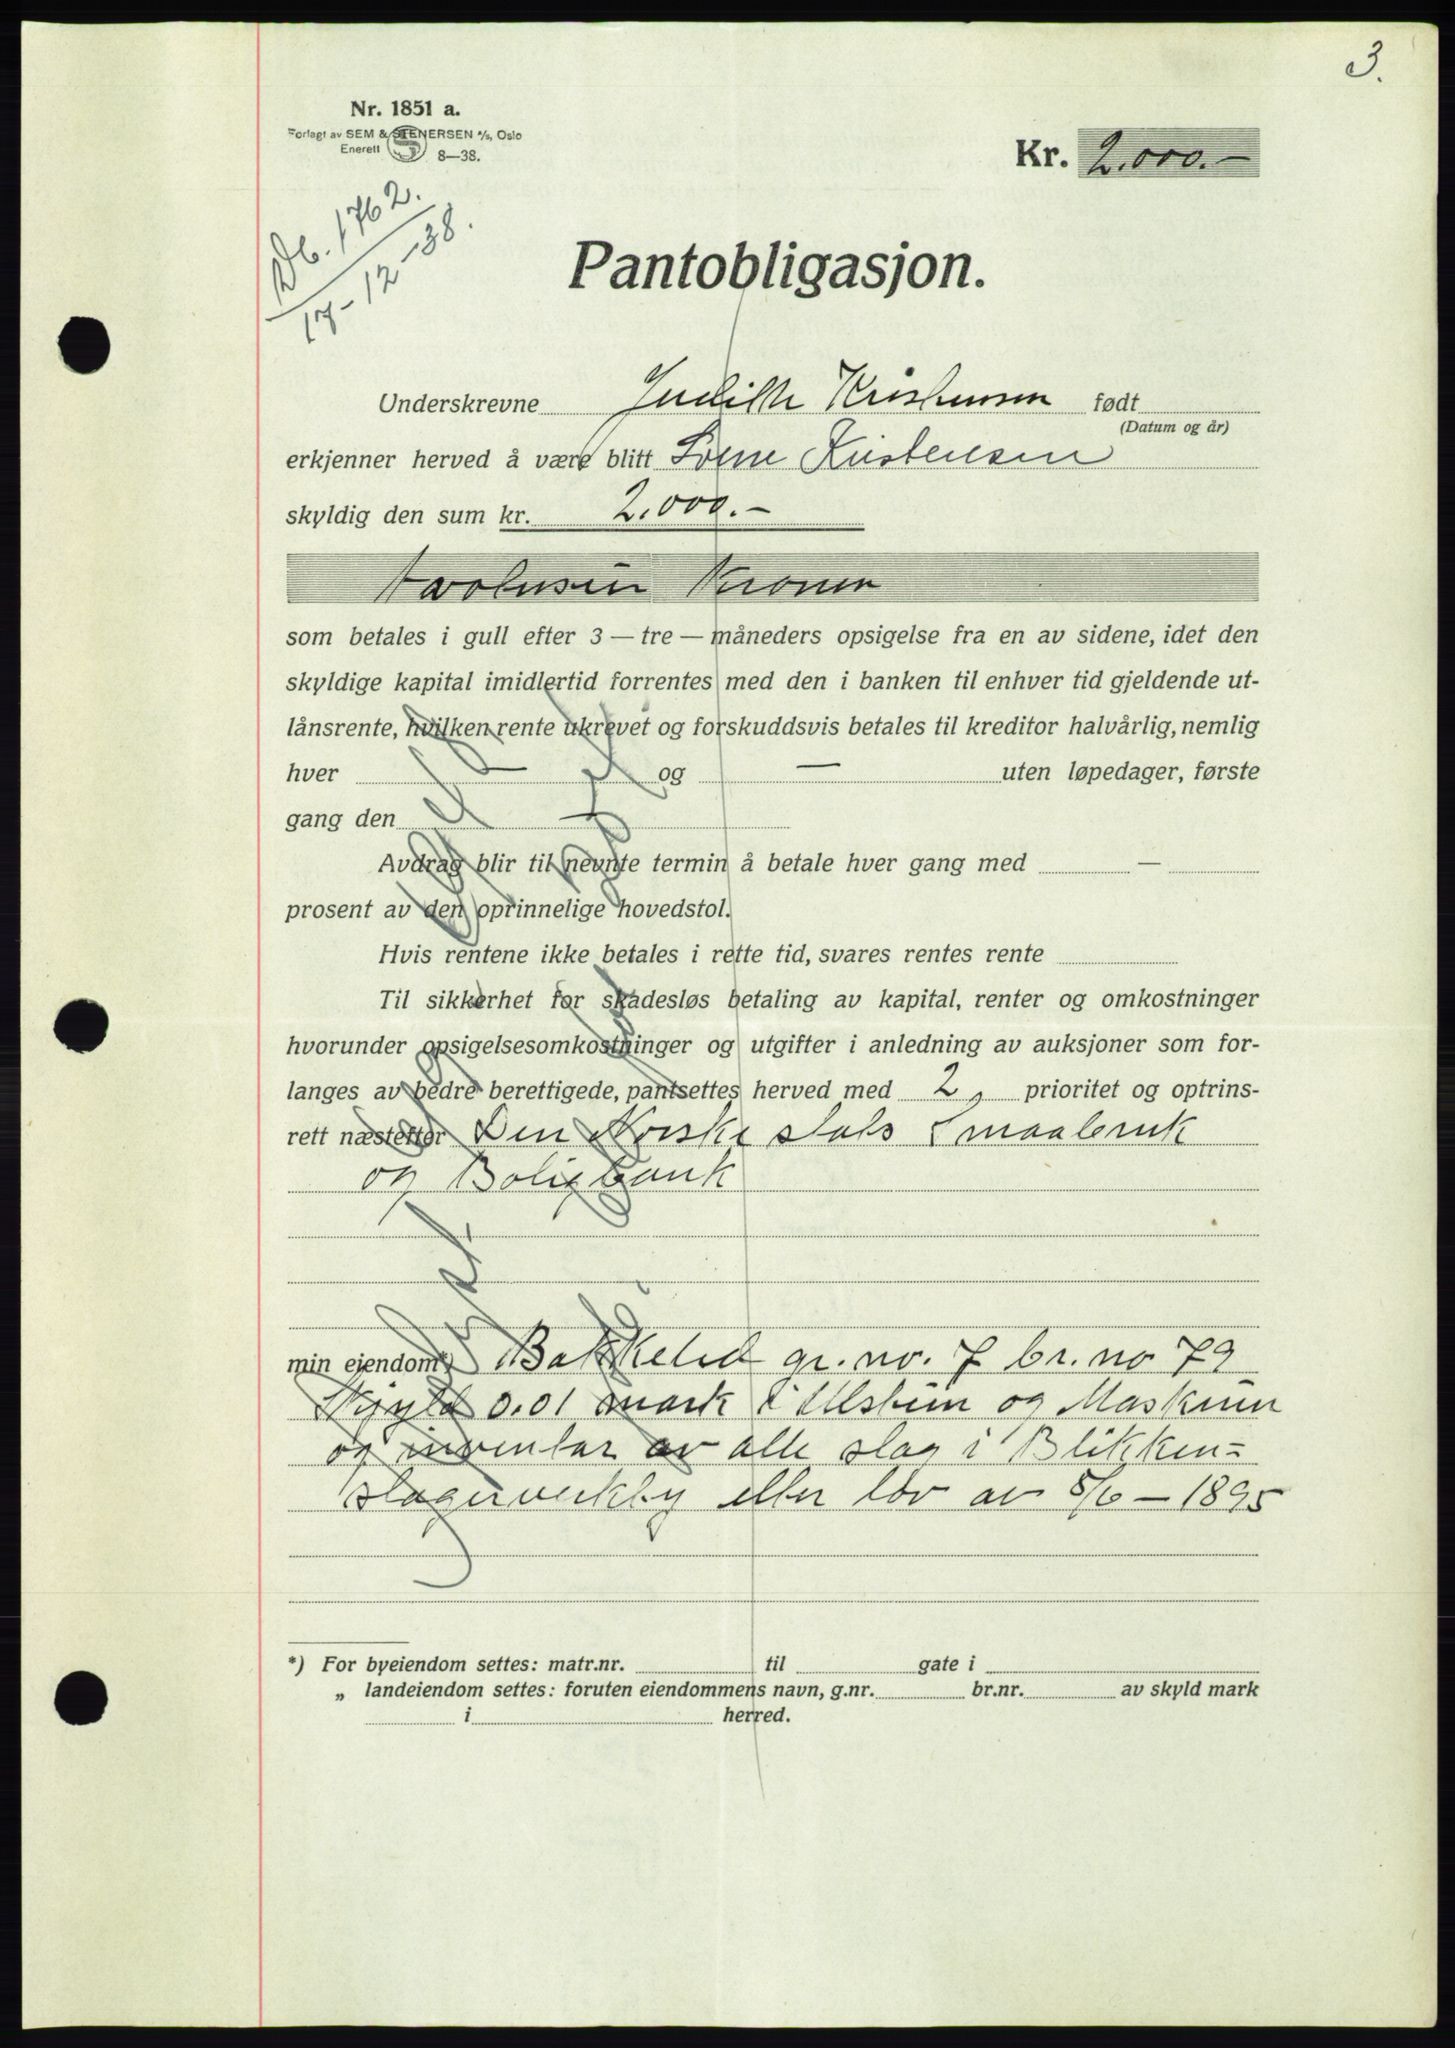 3.
Nr. 1851 a.
Forlagt av SEM & STENERSEN A/S, Oslo
Enerett 8—38.
Kr. 2.000.-
Db. 1762.
17-12-38.
Pantobligasjon.
Underskrevne Judith Kristensen født
(Datum og år)
erkjenner herved å være blitt Sverre Kristensen
skyldig den sum kr. 2.000.-
totusen kroner
som betales i gull efter 3 — tre — måneders opsigelse fra en av sidene, idet den
skyldige kapital imidlertid forrentes med den i banken til enhver tid gjeldende ut-
lånsrente, hvilken rente ukrevet og forskuddsvis betales til kreditor halvårlig, nemlig
hver — og — uten løpedager, første
gang den —
Avdrag blir til nevnte termin å betale hver gang med —
prosent av den oprinnelige hovedstol.
Hvis rentene ikke betales i rette tid, svares rentes rente
Til sikkerhet for skadesløs betaling av kapital, renter og omkostninger
hvorunder opsigelsesomkostninger og utgifter i anledning av auksjoner som for-
langes av bedre berettigede, pantsettes herved med 2, prioritet og optrins-
rett næstefter Den Norske stats Smaabruk
og Boligbank
min eiendom*) Bakkelid gr. no. 7 br. no 79
Skyld 0.01 mark i Ulstein og Maskiner
og inventar av alle slag i Blikken=
slagerverkby eller lov av 8/6 – 1895
*) For byeiendom settes: matr.nr. til gate i
„ landeiendom settes: foruten eiendommens navn, g.nr. br.nr. av skyld mark
i herred.